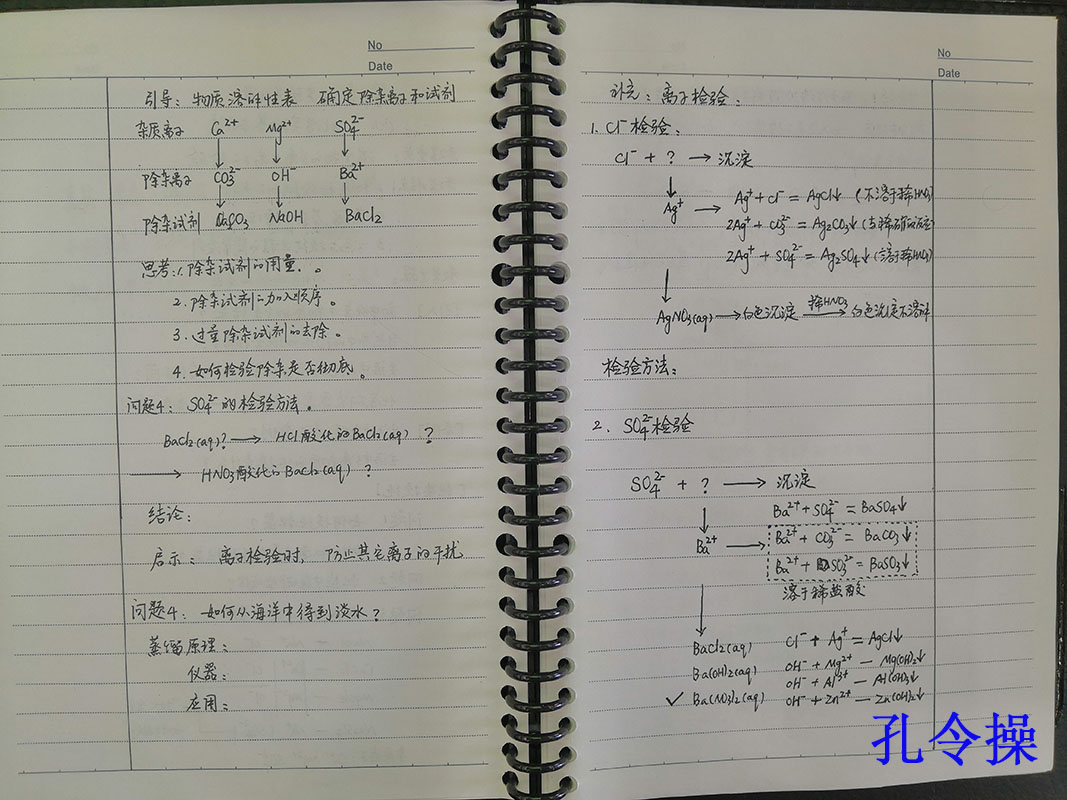 No
Date
引导：物质溶解性表 确定除杂离子和试剂
杂质离子 Ca²⁺ Mg²⁺ SO₄²⁻
↓ ↓ ↓
除杂离子 CO₃²⁻ OH⁻ Ba²⁺
↓ ↓ ↓
除杂试剂 Na₂CO₃ NaOH BaCl₂
思考：1.除杂试剂的用量。
2.除杂试剂的加入顺序。
3.过量除杂试剂的去除。
4.如何检验除杂是否彻底。
问题4：SO₄²⁻的检验方法。
BaCl₂(aq)? → HCl酸化的BaCl₂(aq) ?
→ HNO₃酸化的BaCl₂(aq) ?
结论：
启示：离子检验时，防止其它离子的干扰
问题4：如何从海洋中得到淡水？
蒸馏原理：
仪器：
应用：
No
Date
补充：离子检验：
1.Cl⁻检验：
Cl⁻ + ? → 沉淀
↓
Ag⁺ → Ag⁺ + Cl⁻ = AgCl↓ (不溶于稀HNO₃)
2Ag⁺ + CO₃²⁻ = Ag₂CO₃↓ (与稀硝酸反应)
2Ag⁺ + SO₄²⁻ = Ag₂SO₄↓ (溶于稀HNO₃)
↓
AgNO₃(aq) → 白色沉淀 稀HNO₃→ 白色沉淀不溶解
检验方法：
2. SO₄²⁻检验
SO₄²⁻ + ? → 沉淀
↓
Ba²⁺ + SO₄²⁻ = BaSO₄↓
Ba²⁺ → Ba²⁺ + CO₃²⁻ = BaCO₃↓
Ba²⁺ + SO₃²⁻ = BaSO₃↓
溶于稀盐酸
↓
BaCl₂(aq) Cl⁻ + Ag⁺ = AgCl↓
Ba(OH)₂(aq) OH⁻ + Mg²⁺ — Mg(OH)₂↓
OH⁻ + Al³⁺ — Al(OH)₃↓
✓ Ba(NO₃)₂(aq) OH⁻ + Zn²⁺ — Zn(OH)₂↓
孔令操